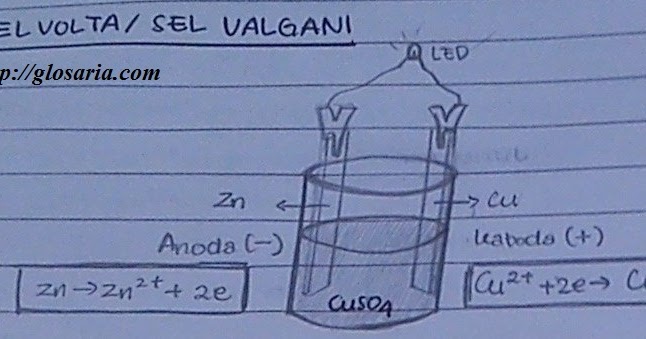 EL VOLTA / SEL VALGANI
p://glosaria.com
LED
Zn
Cu
Anoda (-)
Katoda (+)
Zn → Zn²⁺ + 2e
Cu²⁺ + 2e → C
CuSO4